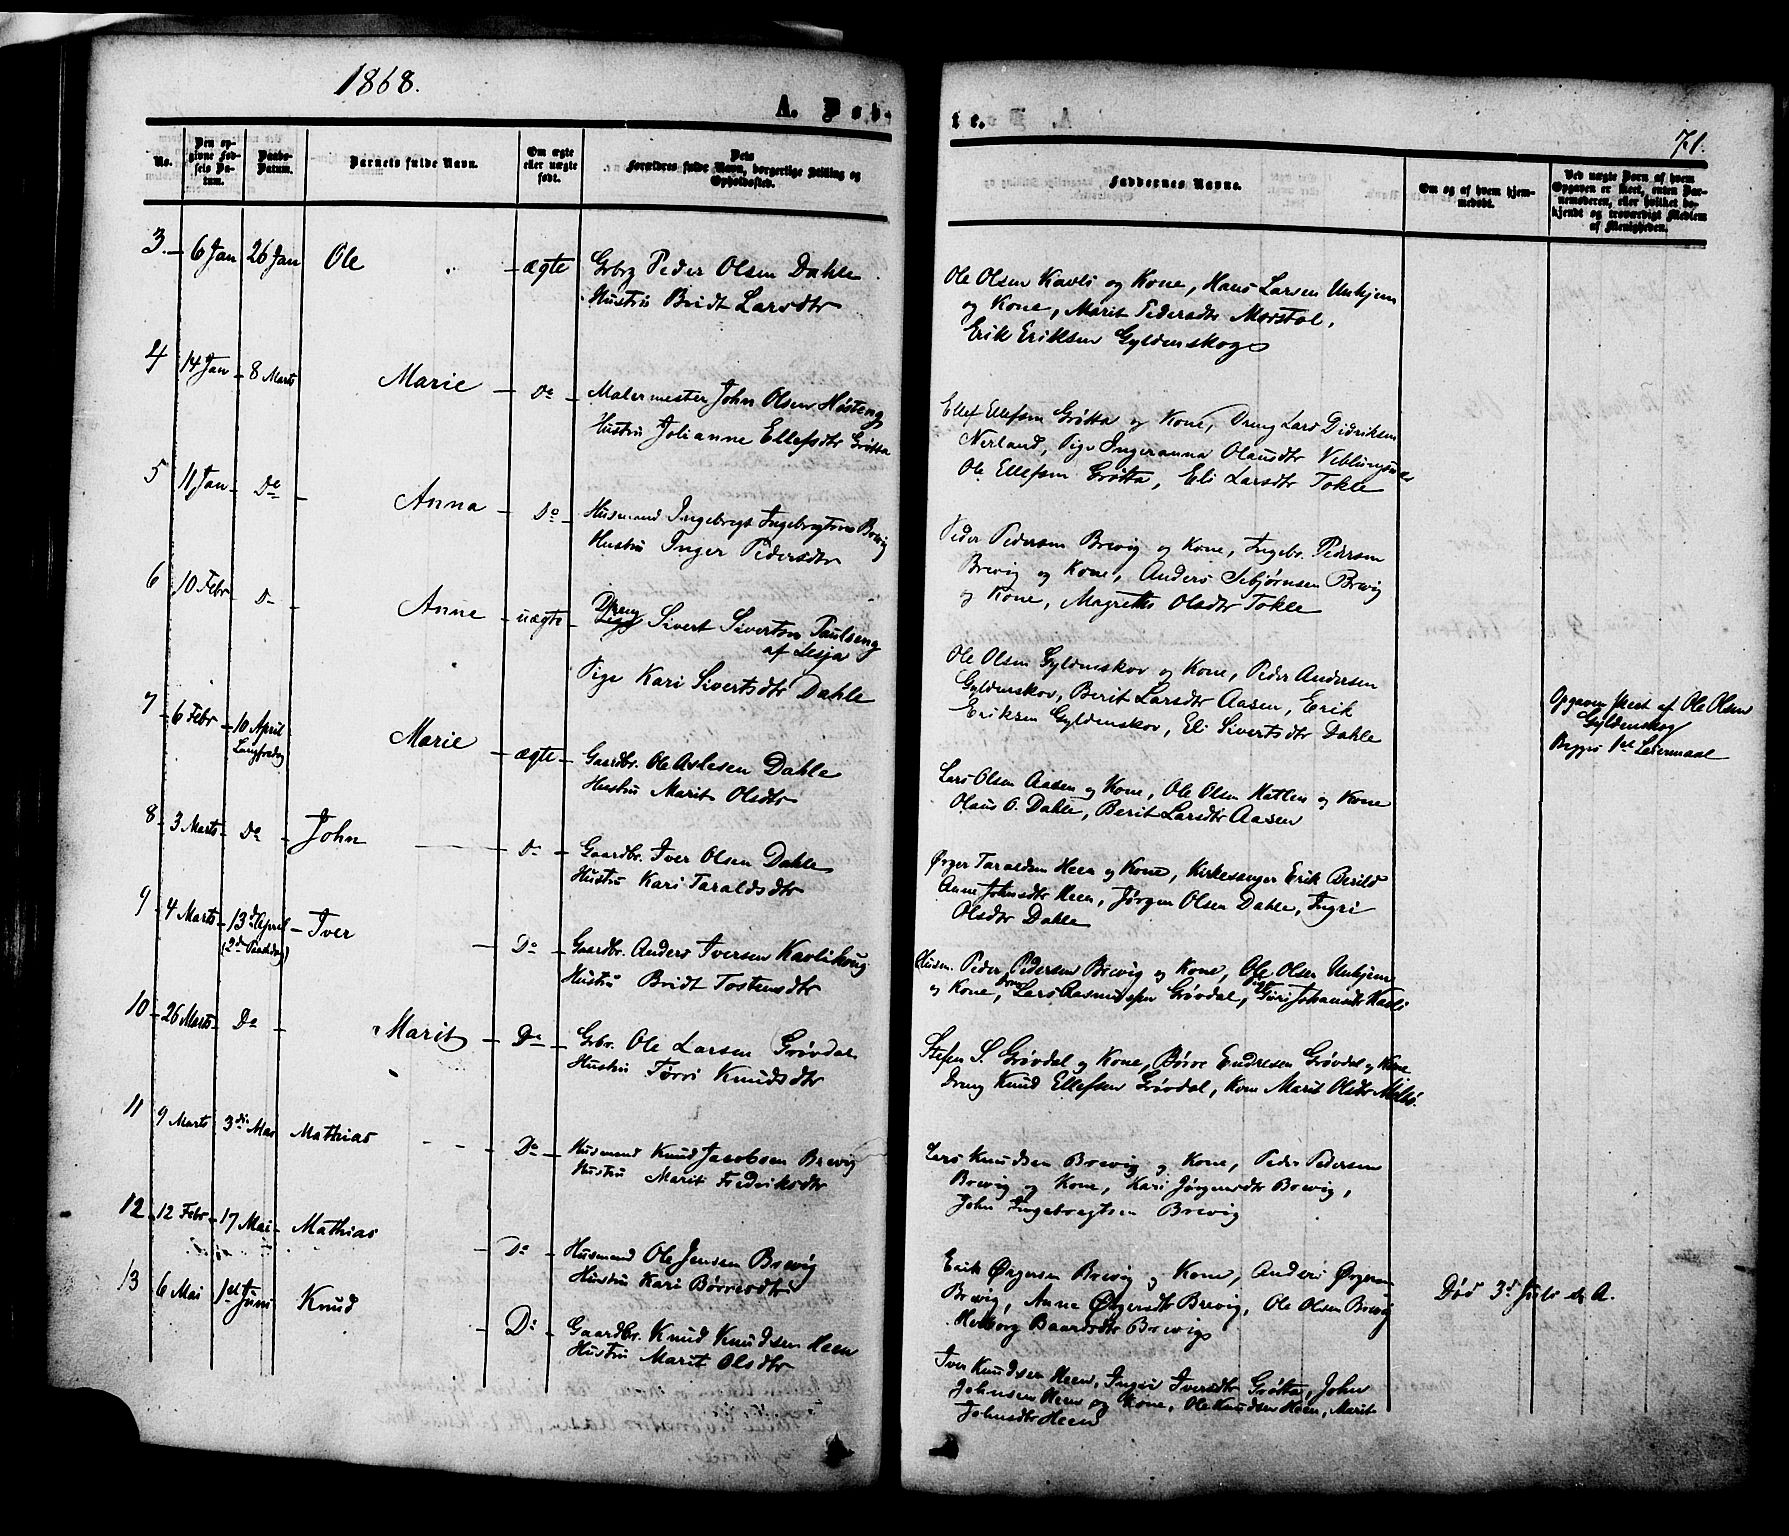 1868.
A. Døb-
te.
71.
No.
Den op-
givne Fød-
sels Da-
tum.
Daabs-
Datum.
Barnets fulde Navn.
Om ægte
eller uægte
født.
Dets
Forældres fulde Navn, borgerlige Stilling og
Opholdssted.
Faddernes Navne.
Om og af hvem hjem-
medøbt.
Ved uægte Børn af hvem
Opgaven er skeet, enten Bar-
nemoderen, eller hvilket be-
kjendt og troværdigt Medlem
af Menigheden.
3. 6 Jan 26 Jan Ole ægte Grbrg Peder Olsen Dahle
Hustru Bridt Larsdtr
Ole Olsen Kavli og Kone, Hans Larsen Unhjem
og Kone, Marit Pedersdtr Morstøl,
Erik Eriksen Gyldenskog
4 14 Jan 8 Marts Marie Do Malermester John Olsen Høsteng
Hustru Jolianne Ellefsdtr Grøtta
Ellef Ellefsen Grøtta og Kone, Dreng Lars Didriksen
Nerland, Pige Ingeranna Olausdtr Veblungsnes
Ole Ellefsen Grøtta, Eli Larsdtr Tokle
5 11 Jan Do Anna Do Husmand Ingebregt Ingebregtsen Brevig
Hustru Inger Pedersdtr
Peder Pedersen Brevig og Kone, Ingebr. Pedersen
Brevig og Kone, Anders Sebjørnsen Brevig
og Kone, Magrethe Olsdtr Tokle
6 10 Febr Do Anne uægte Dreng Sivert Sivertsen Paulseng
af Lesja
Pige Kari Sivertsdtr Dahle
Ole Olsen Gyldenskov og Kone, Peder Andersen
Gyldenskov, Berit Larsdtr Aasen, Erik
Eriksen Gyldenskov, Eli Sivertsdtr Dahle
Opgaven skeet af Ole Olsen
Gyldenskog
Begges 1ste Leiermaal
7 6 Febr 10 April
Langfredag
Marie ægte Gaardbr. Ole Aslesen Dahle
Hustru Marit Olsdtr
Lars Olsen Aasen og Kone, Ole Olsen Hatlen og Kone
Olaus O. Dahle, Berit Larsdtr Aasen
8 3 Marts Do John Do Gaardbr. Iver Olsen Dahle
Hustru Kari Taraldsdtr
Ørger Taraldsen Heen og Kone, Kirkesanger Erik Berild
Anne Johnsdtr Heen, Jørgen Olsen Dahle, Ingri
Olsdtr Dahle
9 4 Marts 13d April
(2d Paaskedag)
Iver Do Gaardbr. Anders Iversen Kavlihoug
Hustru Bridt Tostensdtr
Husm. Peder Pedersen Brevig og Kone, Ole Olsen Unhjem
og Kone, Dreng Lars Rasmussen Grøvdal, Pige Guri Johansdtr Kavli
10 26 Marts Do Marit Do Grbr. Ole Larsen Grøvdal
Hustru Torri Knudsdtr
Stefen S. Grøvdal og Kone, Børre Endresen Grøvdal og Kone
Dreng Knud Ellefsen Grøvdal, Kone Marit Olsdtr
11 9 Marts 3die Mai Mathias Do Husmand Knud Jacobsen Brevig
Hustru Marit Fredriksdtr
Lars Knudsen Brevig og Kone, Peder Pedersen
Brevig og Kone, Kari Jørgensdtr Brevig,
John Ingebregtsen Brevig
12 12 Febr 17 Mai Mathias Do Husmand Ole Jensen Brevig
Hustru Kari Børresdtr
Erik Ørgersen Brevig og Kone, Anders Ørgersen
Brevig, Anne Ørgersdtr Brevig, Ole Olsen Brevig
Herborg Baardsdtr Brevig
Død 3d Juli d. A.
13 6 Mai 1ste Juni Knud Do Gaardbr. Knud Knudsen Heen
Hustru Marit Olsdtr
Iver Knudsen Heen, Ingri Iversdtr Grøtta, John
Johnsen Heen og Kone, Ole Knudsen Heen, Marit
Johnsdtr Heen